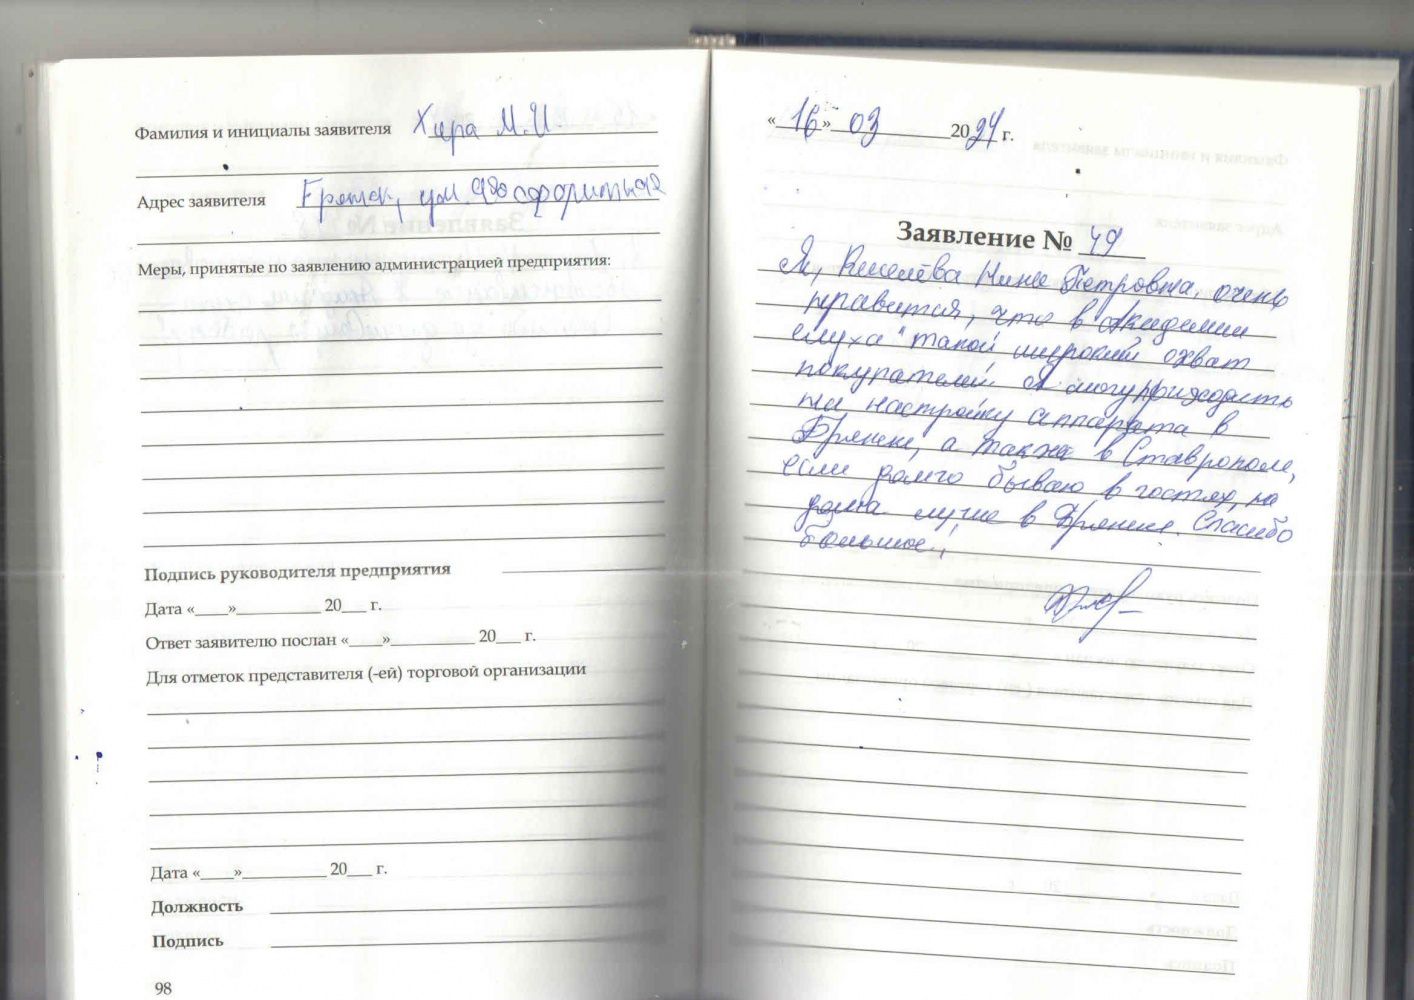 Фамилия и инициалы заявителя Хира М.И.
Адрес заявителя Брянск, ул. Фосфоритная
Меры, принятые по заявлению администрацией предприятия:
Подпись руководителя предприятия
Дата «____»__________ 20___ г.
Ответ заявителю послан «____»__________ 20___ г.
Для отметок представителя (-ей) торговой организации
Дата «____»__________ 20___ г.
Должность
Подпись
98
«16» 03 2024 г.
Заявление № 49
Я, Киселёва Нина Петровна, очень
нравится, что в Академии
слуха" такой широкий охват
покупателей. Я могу приходить
на настройку аппарата в
Брянске, а также в Ставрополе,
если долго бываю в гостях, но
дома лучше в Брянске. Спасибо
большое!